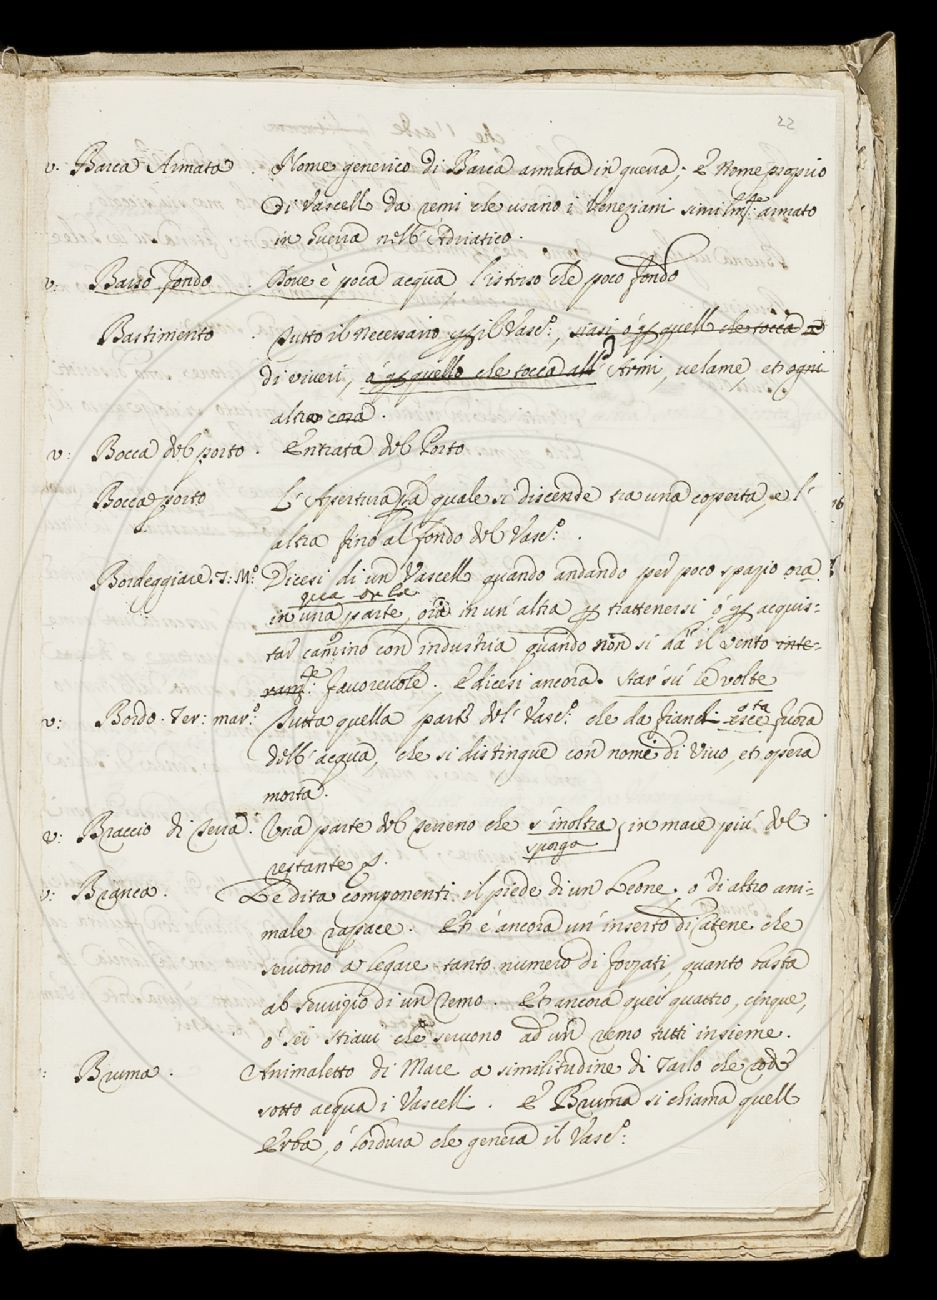 22
v. Barca Armata . Nome generico di Barca armata in guerra; È nome proprio
di Vascell da remi che usano i Veneziani similmte: armato
in Guerra nell' Adriatico.
v: Basso fondo . Dove è poca acqua l'istesso che poco fondo
Bastimento . Tutto il necessario p il Vasco:, siasi ó p quell che tocca
di viveri, ó p quello che tocca all' Armi, velame, et ogni
altra cosa.
v: Bocca del porto . Entrata del Porto
Bocca porto L' Apertura p la quale si discende tra una coperta, e l'
altra fino al fondo del Vasco: .
Bordeggiare. T: Mo. Dicesi di un Vascell quando andando per poco spazio ora
qua or la
in una parte, ora in un' altra p trattenersi ó p acquis=
tar camino con industria quando non si dà il vento inte=
ramte: favorevole. E dicesi ancora. Star sù le volte
v: Bordo. Ter: maro. Tutta quella parte del Vasco: che da fianchi esce fuora
dell' acqua, che si distingue con nome di Vivo, et opera
morta.
v: Braccio di terra. Una parte del terreno che s'inoltra in mare più del
sporga
restante
v: Branca. Le dita componenti il piede di un Leone, o di altro ani=
male rapace. Et è ancora un' inserto di Catene che
servono a legare tanto numero di forzati quanto basta
al servigio di un remo. Et ancora quei quattro, cinque,
o sei stiavi che servono ad un remo tutti insieme.
Bruma. Animaletto di Mare a similitudine di Tarlo che rode
sotto acqua i Vascelli. E Bruma si chiama quell
Erba, ó lordura che genera il Vasco: